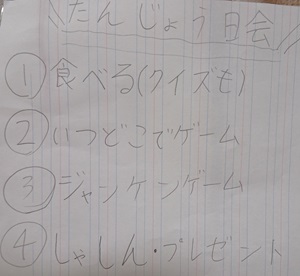 たんじょう日会
① 食べる(クイズも)
② いつどこでゲーム
③ ジャンケンゲーム
④ しゃしん・プレゼント